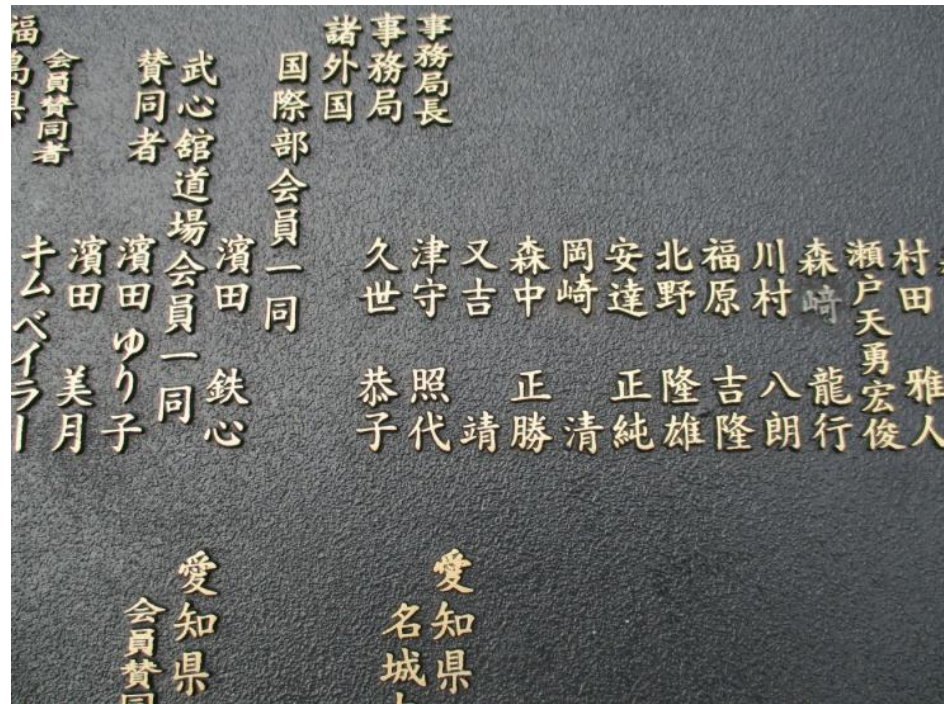 村田 雅人
瀬戸天勇宏俊
森﨑 龍行
川村 八朗
福原 吉隆
北野 隆雄
安達 正純
岡崎 清
森中 正勝
又吉 靖
事務局長 津守 照代
事務局 久世 恭子
諸外国
国際部会員一同
濱田 鉄心
武心舘道場会員一同
賛同者 濱田 ゆり子
濱田 美月
会員賛同者 キムベイラー
福島県
愛知県
名城
愛知県
会員賛同